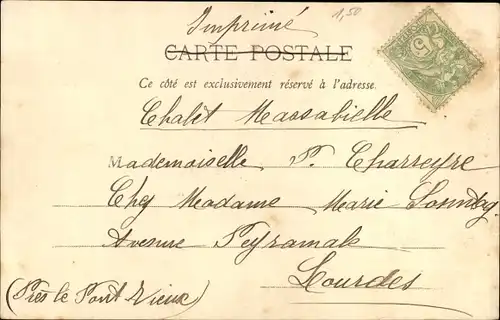 Imprimé
1,50
CARTE POSTALE
Ce côté est exclusivement réservé à l'adresse.
Chalet Massabielle
Mademoiselle P. Charreyre
Chez Madame Marie Sonntag
Avenue Peyramale
Lourdes
(Près le Pont Vieux)
5